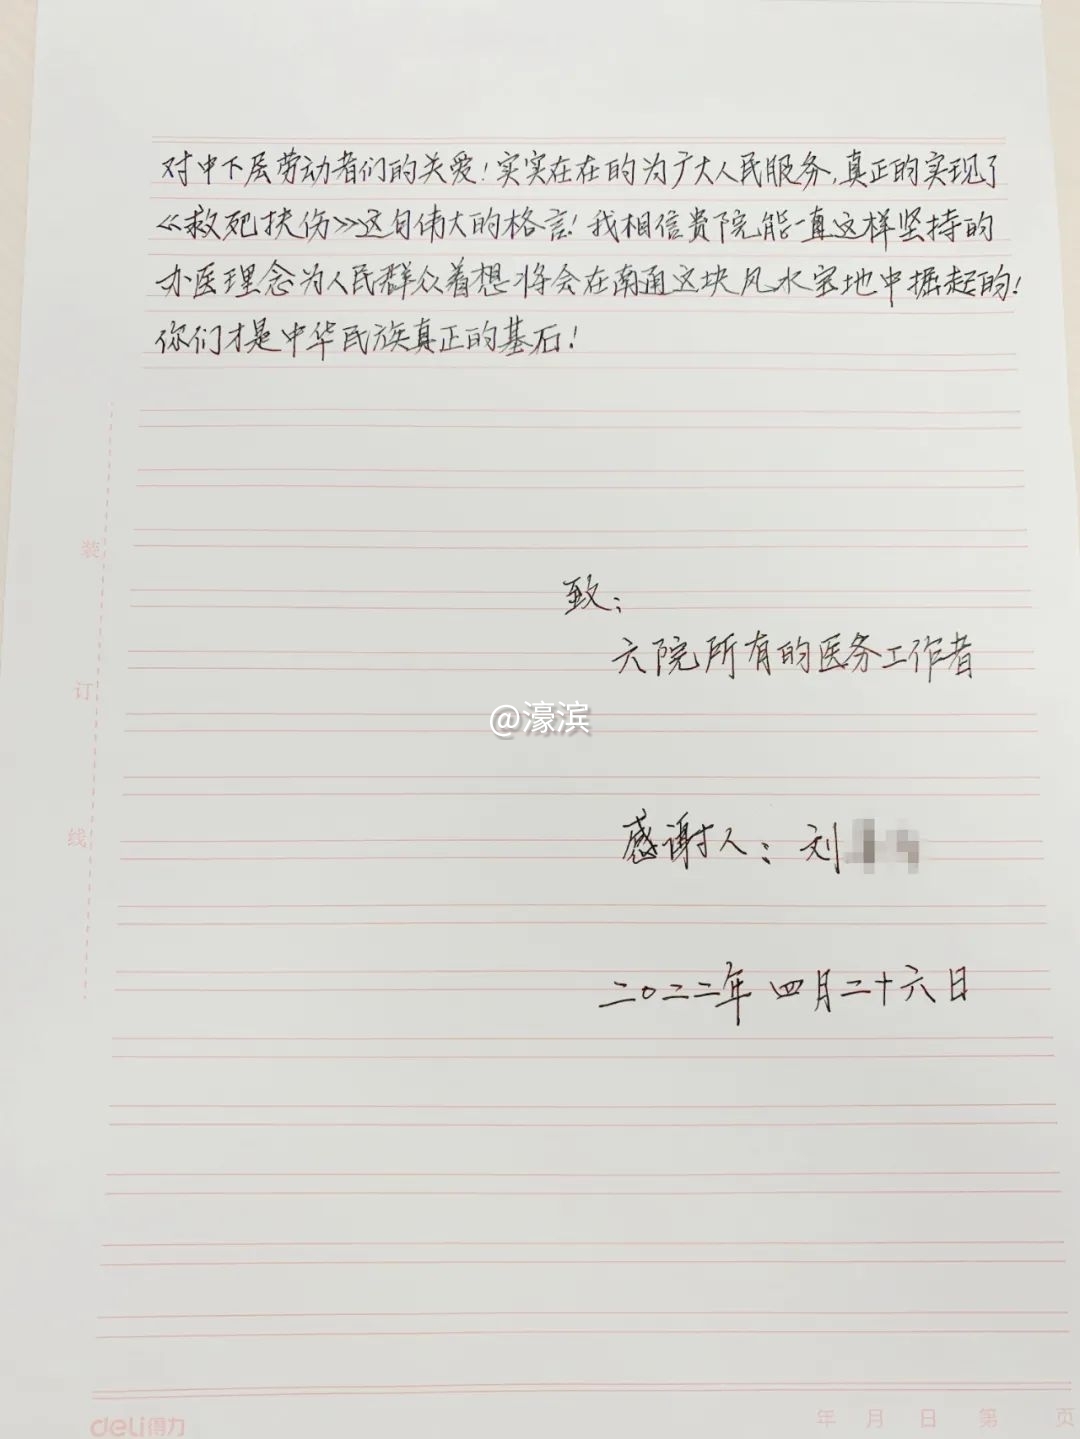 对中下层劳动者们的关爱！实实在在的为广大人民服务，真正的实现了
《救死扶伤》这句伟大的格言！我相信贵院能一直这样坚持的
办医理念为人民群众着想将会在南通这块风水宝地中掘起的！
你们才是中华民族真正的基石！
装
致：
六院所有的医务工作者
订
@濠滨
线
感谢人：刘
二〇二二年 四月二十六日
deli得力
年 月 日 第 页